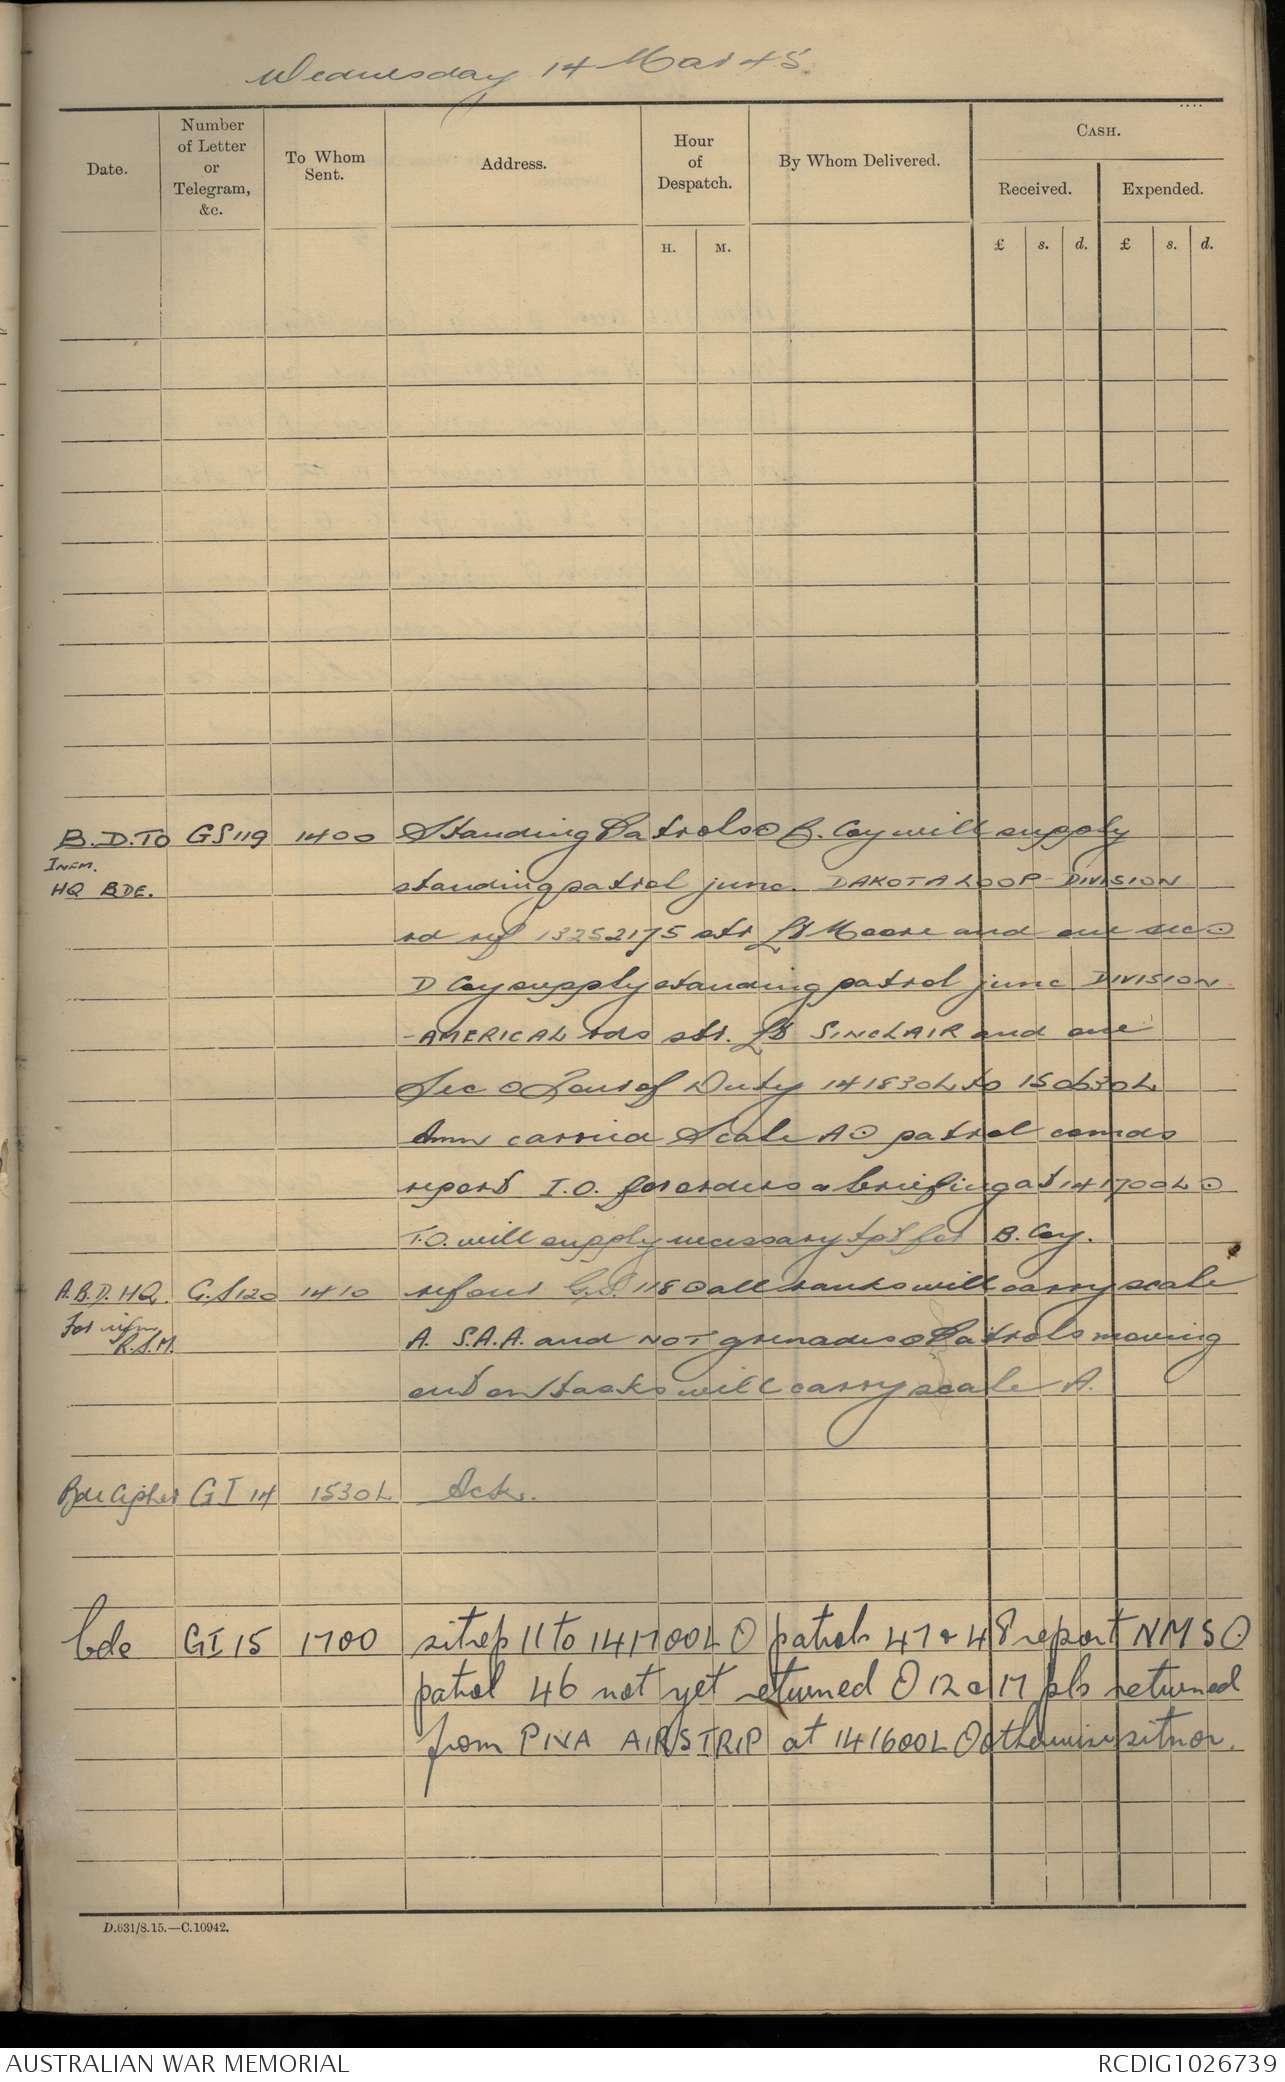 Wednesday 14 Mar 45.
Date.
Number
of Letter
or
Telegram,
&c.
To Whom
Sent.
Address.
Hour
of
Despatch.
By Whom Delivered.
CASH.
Received.
Expended.
H.
M.
£
s.
d.
£
s.
d.
B.D.TO GS119 1400 Standing Patrols ⊙ B. Coy will supply
INFM.
HQ BDE. standing patrol junc. DAKOTA LOOP - DIVISION
rd ref 13252175 str Lt Moore and one sec ⊙
D Coy supply standing patrol junc DIVISION
-AMERICAL rds str. Lt SINCLAIR and one
Sec ⊙ Tour of Duty 141830L to 150630L
Amn carried Scale A ⊙ patrol comds
report I.O. for orders & briefing at 141700L ⊙
T.O. will supply necessary tpt for B. Coy.
A.B.D. HQ. G.S120 1410 ref our G.S. 118 ⊙ all ranks will carry scale
For infm
R.S.M. A. S.A.A. and NOT grenades ⊙ Patrols moving
out on tasks will carry scale A.
Bde Cipher GI 14 1530L Ack.
bde GI 15 1700 sitrep 11 to 141700L ⊙ patrols 47 & 48 report NMS ⊙
patrol 46 not yet returned ⊙ 12 & 17 pls returned
from PIVA AIRSTRIP at 141600L ⊙ otherwise sitnor.
D.631/8.15.—C.10942.
AUSTRALIAN WAR MEMORIAL
RCDIG1026739